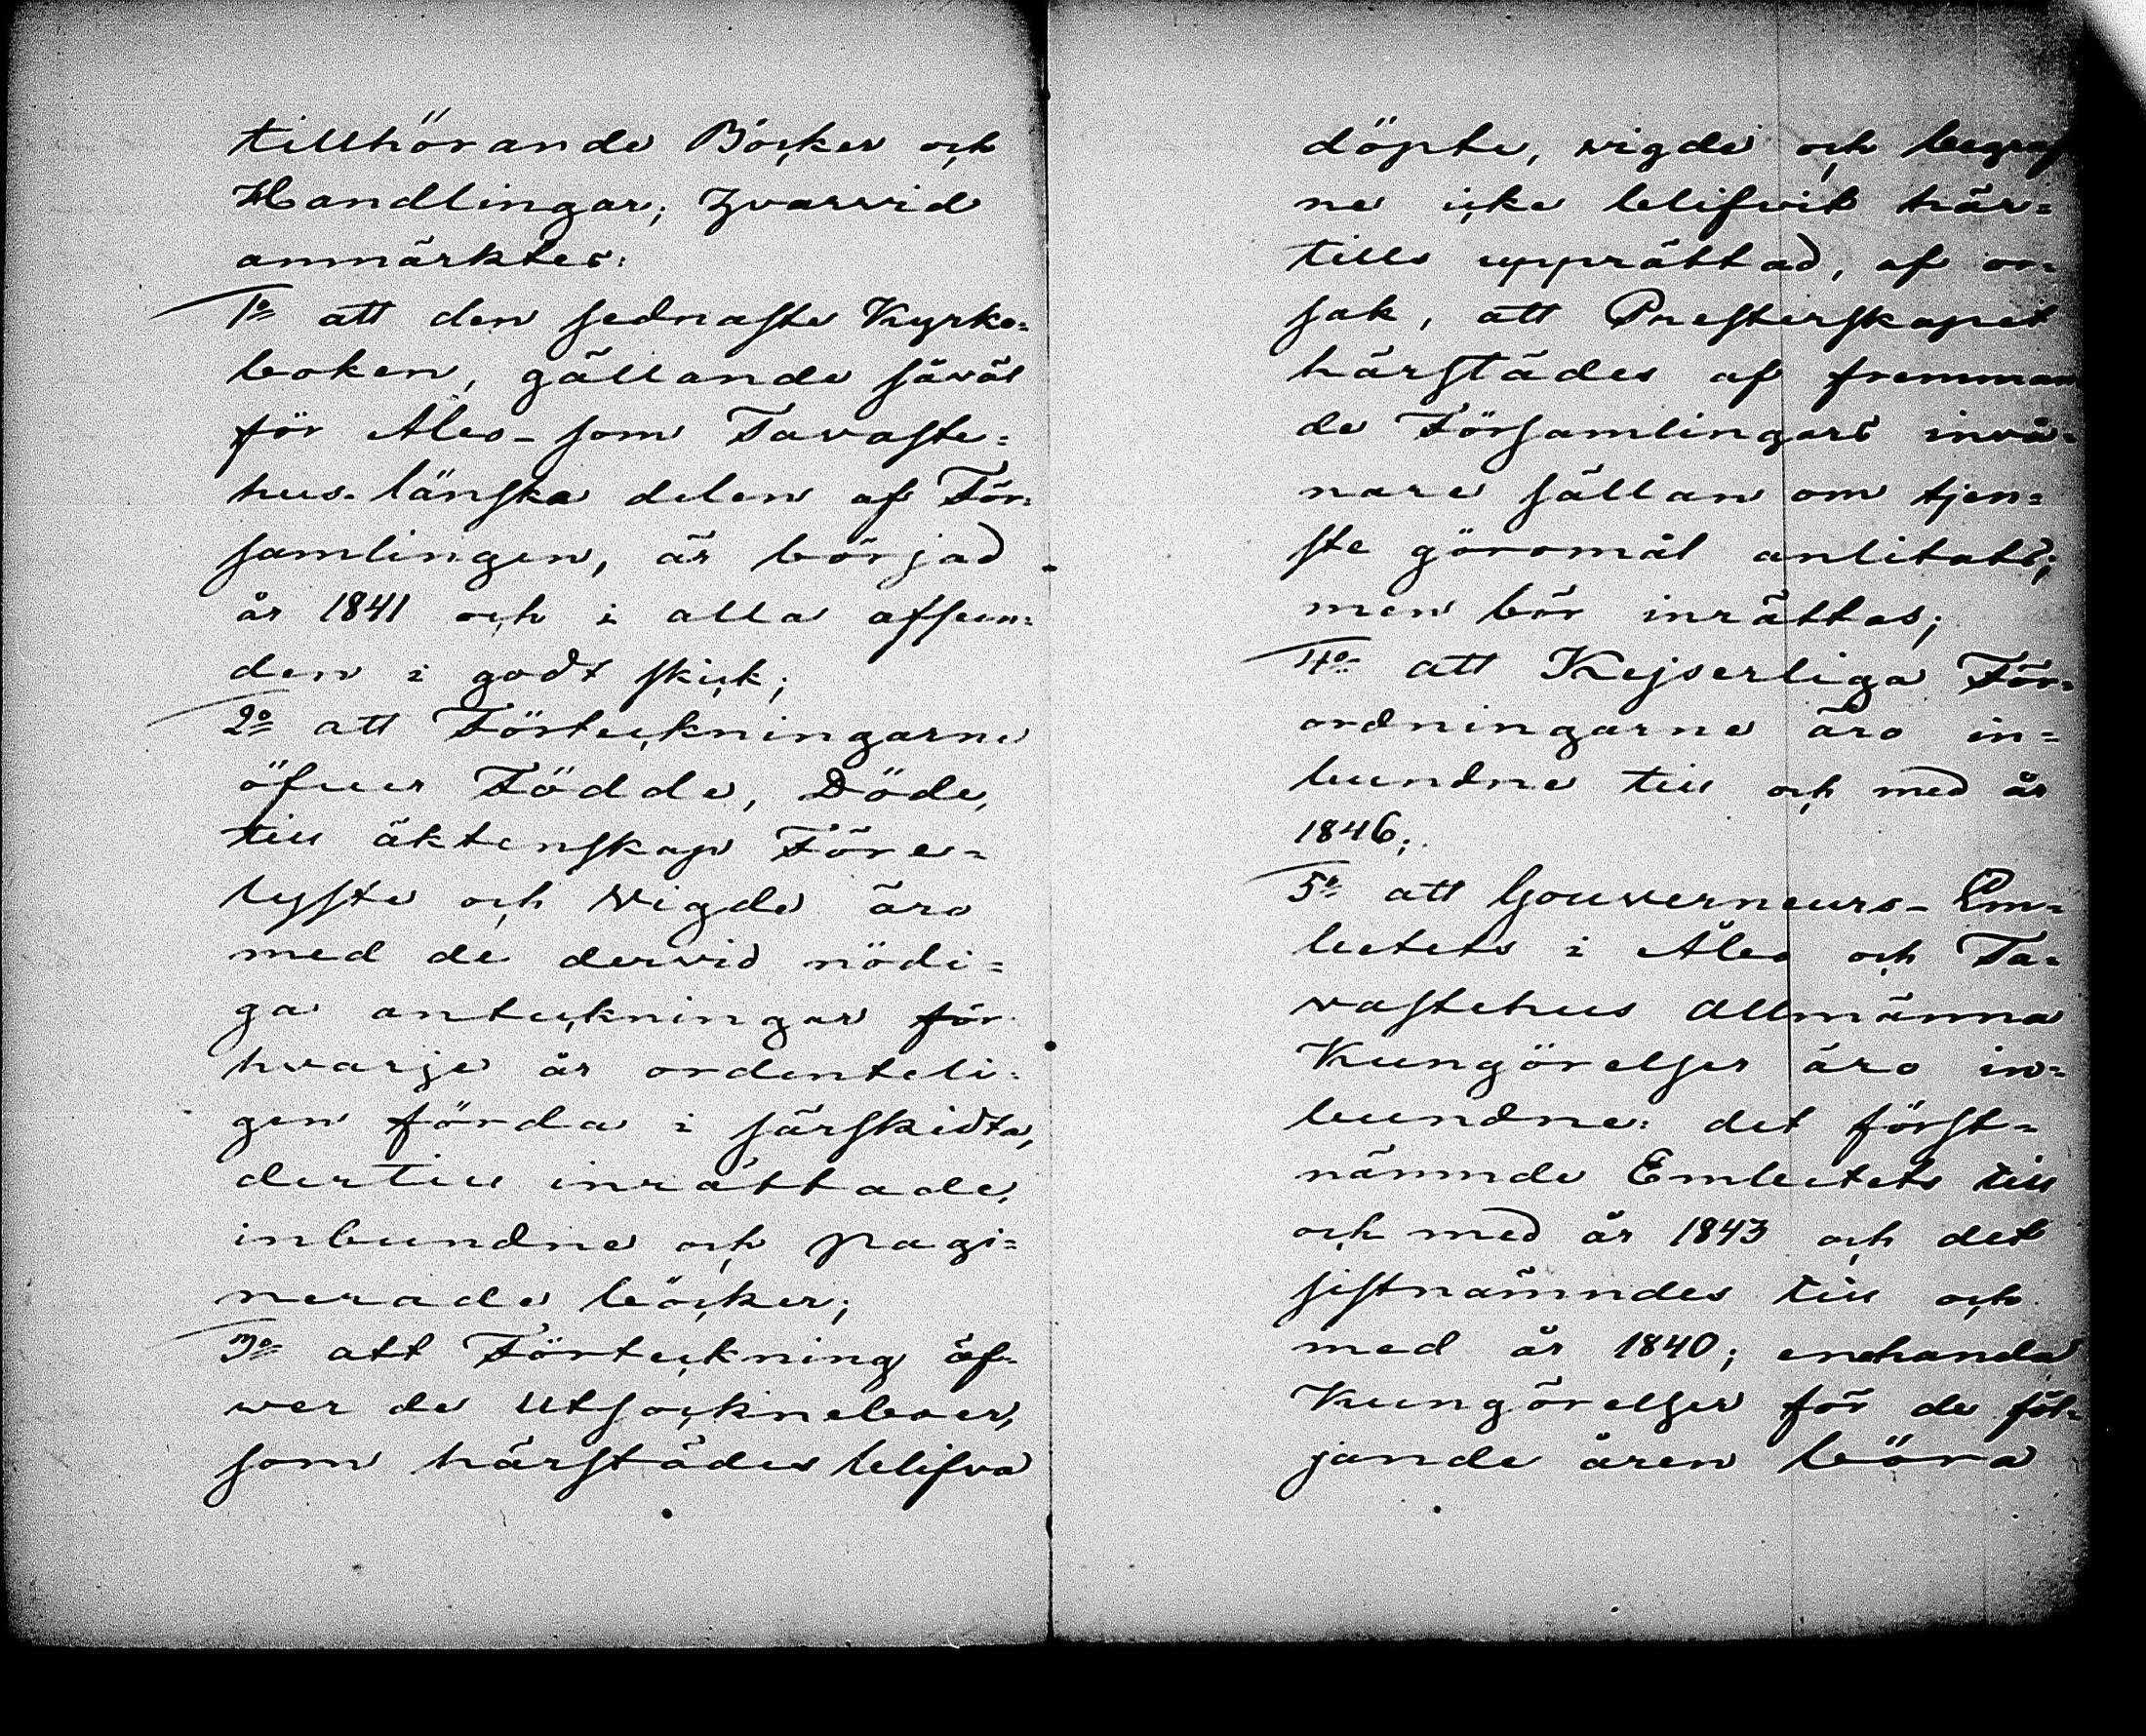 tillhörande Böcker och
Handlingar; hvarvid
anmärktes:
1º att den sednaste Kyrko=
boken, gällande såväl
för Åbo- som Tavaste=
hus-länska delen af För=
samlingen, är börjad
år 1841 och i alla afseen=
den i godt skick;
2º att Förteckningarne
öfver Födde, Döde,
till äktenskap Före=
lyste och Vigde äro
med de dervid nödi=
ga anteckningar för
hvarje år ordenteli=
gen förda i särskildta,
dertill inrättade,
inbundne och pagi=
nerade böcker;
3º att Förteckning öf=
ver de Utsockneboer,
som härstädes blifva
döpte, vigde och begraf
ne icke blifvit här=
tills upprättad, af or=
sak, att Presterskapet
härstädes af fremman
de Församlingars invå=
nare sällan om tjen=
ste göromål anlitats;
men bör inrättas;
4º att Kejserliga För=
ordningarne äro in=
bundne till och med år
1846;
5º att Gouverneurs- Em=
betets i Åbo och Ta=
vastehus Allmänna
Kungörelser äro in=
bundne: det först=
nämnde Embetets till
och med år 1843 och det
sistnämndes till och
med år 1840; enehanda
Kungörelser för de föl=
jande åren böra